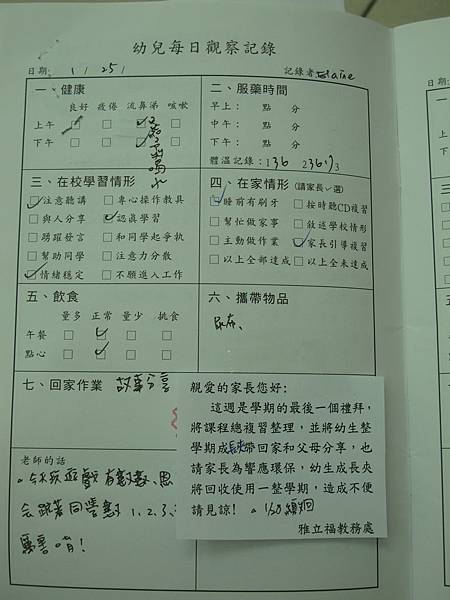 幼兒每日觀察記錄
日期: 1 / 25 / 記錄者: Elaine
一、健康
良好 疲倦 流鼻涕 咳嗽
上午 □ □ □ □
下午 □ □ □ □
二、服藥時間
早上： 點 分
中午： 點 分
下午： 點 分
體溫記錄：136 236
三、在校學習情形
□注意聽講 □專心操作教具
□與人分享 □認真學習
□踴躍發言 □和同學起爭執
□幫助同學 □注意力分散
□情緒穩定 □不願進入工作
四、在家情形 (請家長✓選)
□睡前有刷牙 □按時聽CD複習
□幫忙做家事 □敘述學校情形
□主動做作業 □家長引導複習
□以上全部達成 □以上全未達成
五、飲食
量多 正常 量少 挑食
午餐 □ □ □ □
點心 □ □ □ □
六、攜帶物品
尿布、
七、回家作業 故事分享
親愛的家長您好:
這週是學期的最後一個禮拜,
將課程總複習整理,並將幼生整
學期成長夾帶回家和父母分享,也
請家長為響應環保,幼生成長夾
將回收使用一整學期,造成不便
請見諒! 1/30 繳回
雅立福教務處
老師的話
今天玩遊戲有數數、
會跟著同學數 1、2、3、
厲害唷!